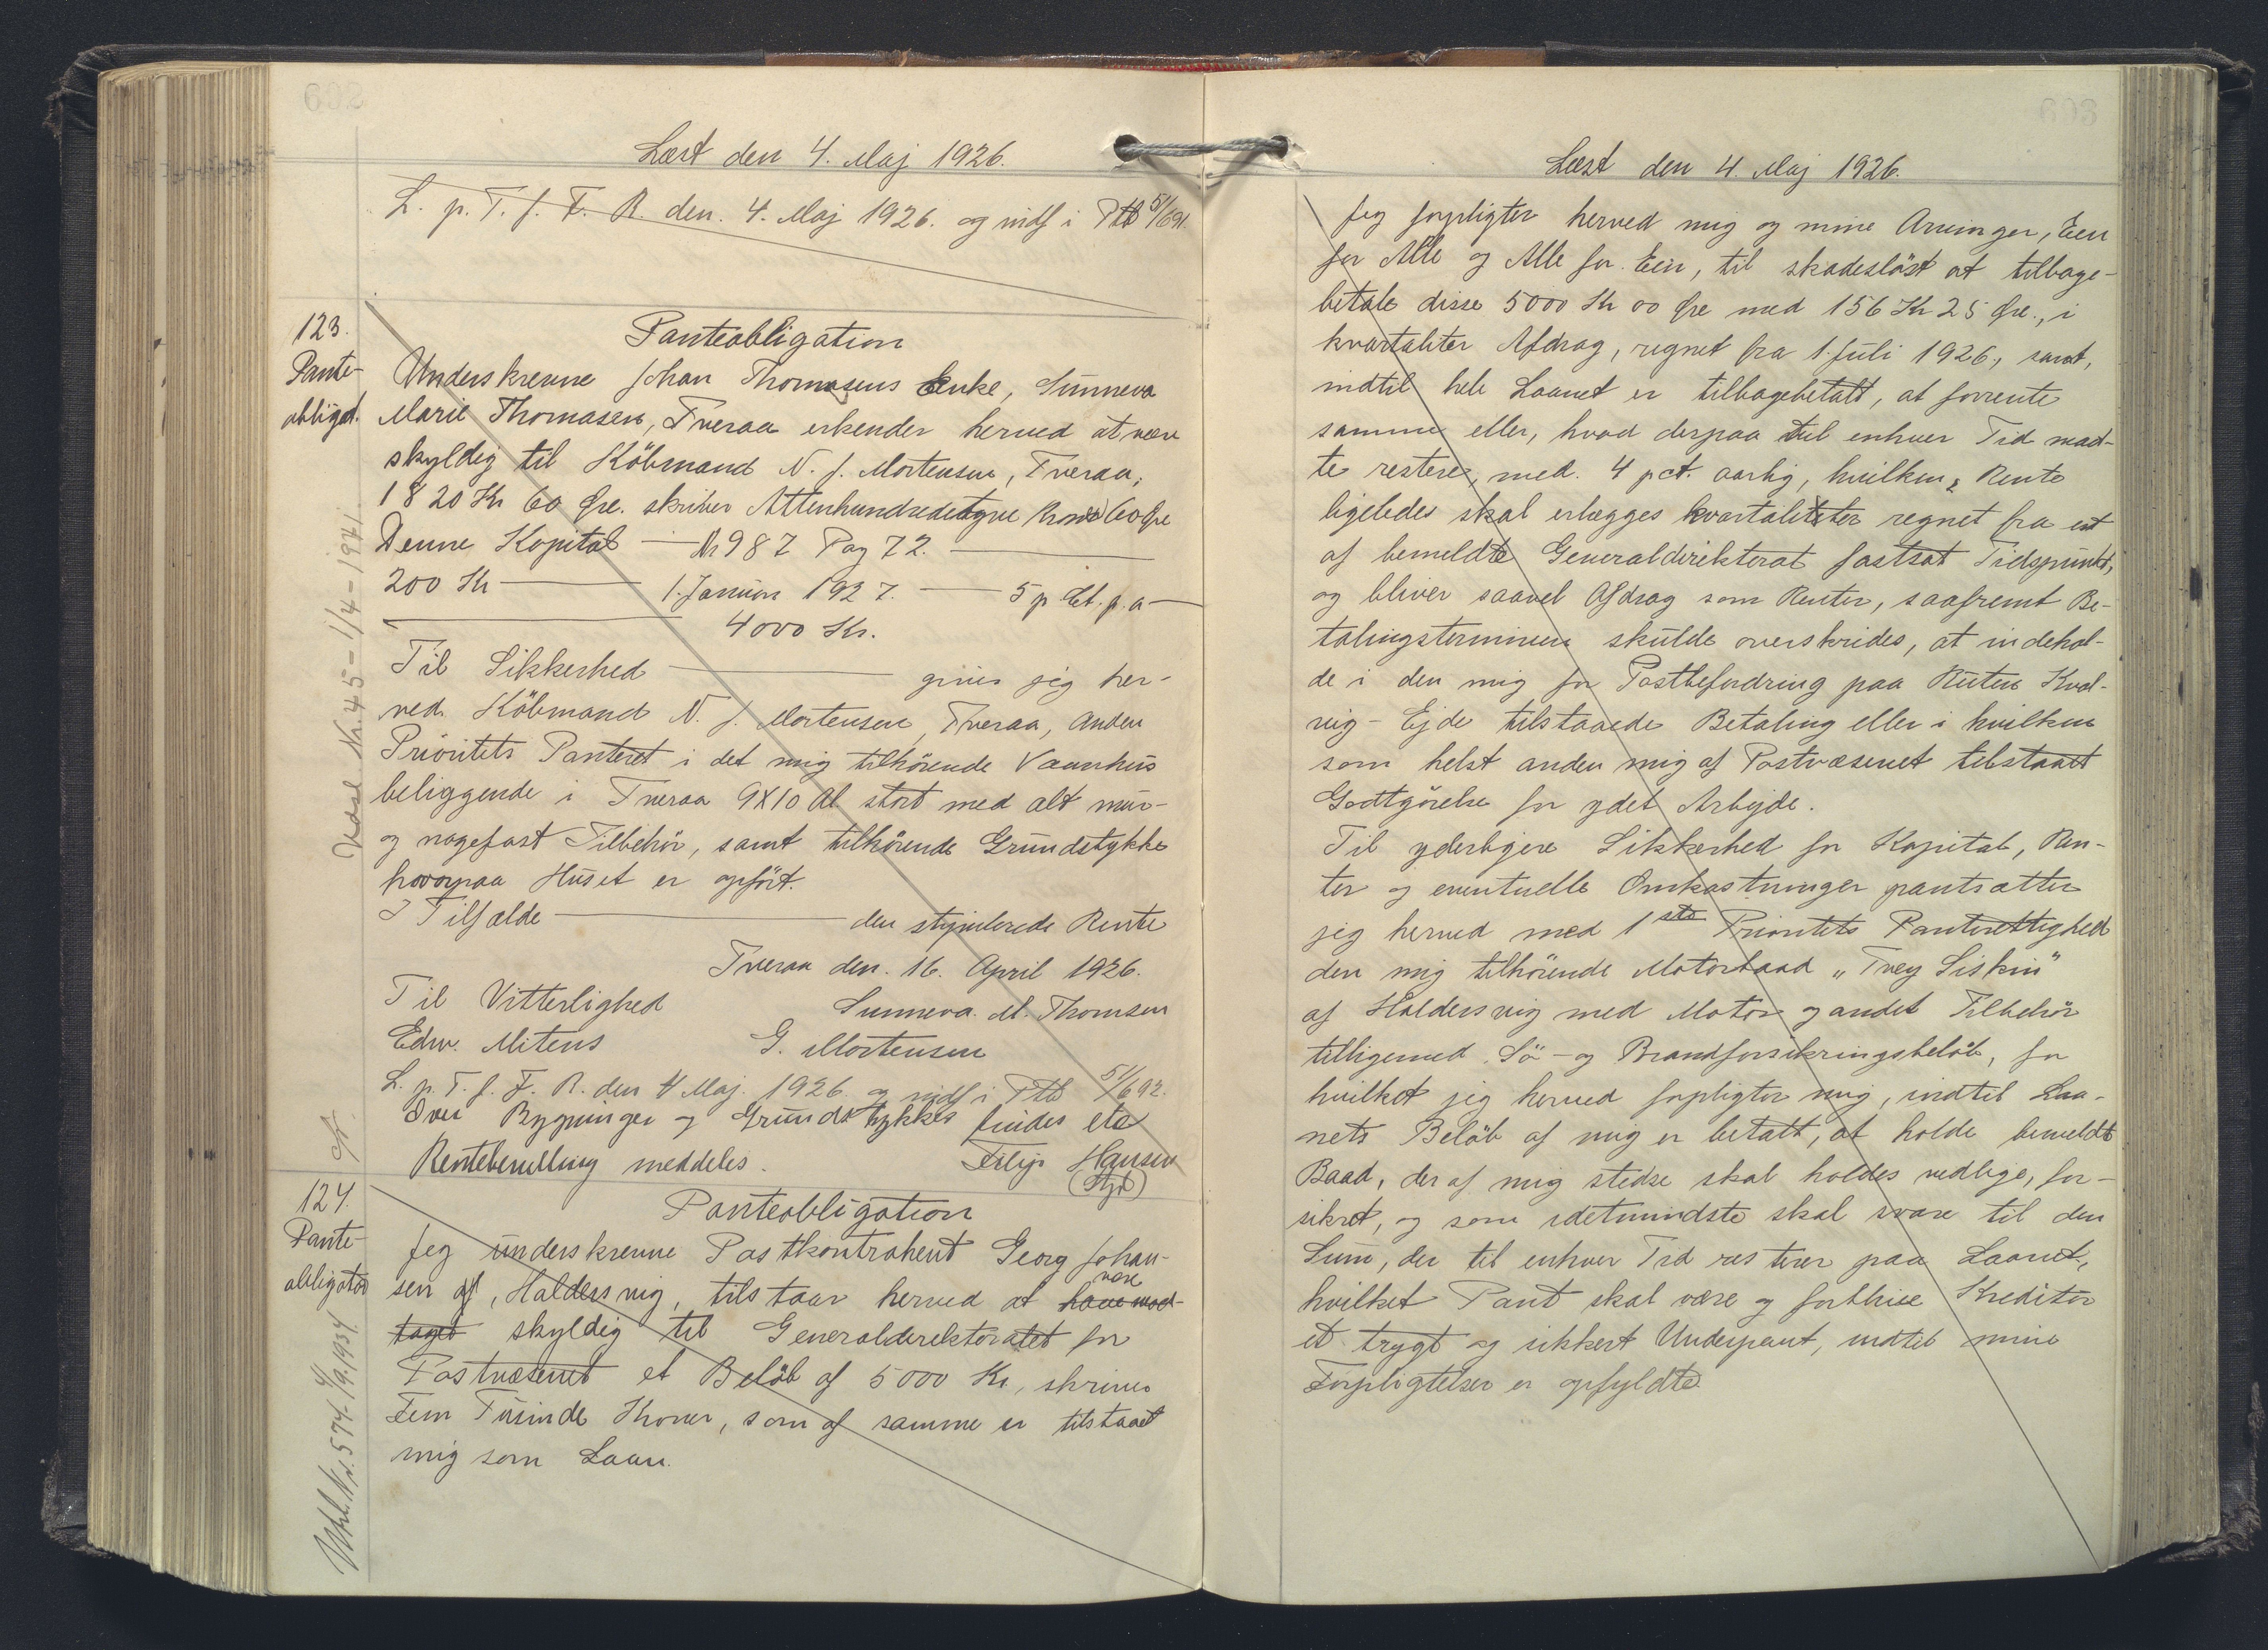 602
Læst den 4. Maj 1926.
L. p. T. f. F. R. den. 4. Maj 1926. og indf i Ptb 5/691.
123.
Pante-
obligat.
Panteobligation
Underskrevne Johan Thomasens Enke, Sunneva
Marie Thomasen, Tveraa erkender herved at være
skyldig til Köbmand N. J. Mortensen, Tveraa,
1820 Kr 60 Øre. skriver Attenhundredetyve Kroner 60 Øre
Denne Kapital — Nr 987 Pag 72. —
200 Kr — 1. Januar 1927. — 5 p Ct. p. a —
— 4000 Kr.
Til Sikkerhed — giver jeg her-
ved Köbmand N. J. Mortensen, Tveraa, anden
Prioritets Panteret i det mig tilhörende Vaanhus
beliggende i Tveraa 9X10 Al stort med alt mur-
og nagefast Tilbehör, samt tilhörende Grundstykke
hvorpaa Huset er opfört.
I Tilfælde — den stipulerede Rente
Tveraa den. 16. April 1926.
Til Vitterlighed Sunneva. M. Thomsen
Edw. Mitens G. Mortensen
L. p. T. f. F. R. den 4 Maj. 1926 og indf i Ptb 5/692.
Over Bygninger og Grundstykker findes etc
Rentebevilling meddeles. Filip Hansen
(Stpl)
Vedsl Nr. 45 - 1/4 - 1941.
124.
Pante-
obligation
Panteobligation
Jeg underskrevne Postkontrahent Georg Johan-
sen af, Haldersvig, tilstaar herved at have mod- være
taget skyldig til Generaldirektoratet for
Postvæsenet et Belöb af 5000 Kr, skriver
Fem Tusinde Kroner, som af samme er tilstaaet
mig som Laan.
Nr. 574 - 1934.
603
Læst den 4. Maj 1926.
Jeg forpligter herved mig og mine Arvinger, Een
for Alle og Alle for Een, til skadeslöst at tilbage-
betale disse 5000 Kr 00 Øre med 156 Kr 25 Øre., i
kvartaliter Afdrag, regnet fra 1. Juli 1926, samt,
indtil hele Laanet er tilbagebetalt, at forrente
samme eller, hvad derpaa til enhver Tid maat-
te restere, med. 4 pct. aarlig, hvilken Rente
ligeledes skal erlægges kvartaliter regnet fra et
af bemeldte Generaldirektorat fastsat Tidspunkt,
og bliver saavel Afdrag som Renter, saafremt Be-
talingsterminen skulde overskrides, at indehol-
de i den mig for Postbefordring paa Ruten Kval-
vig - Ejde tilstaaede Betaling eller i hvilken
som helst anden mig af Postvæsenet tilstaaet
Godtgörelse for ydet Arbejde.
Til yderligere Sikkerhed for Kapital, Ren-
ter og eventuelle Omkostninger pantsætter
jeg herved med 1ste Prioritets Panterettighed
den mig tilhörende Motorbaad „Tvey Siskin"
af Haldersvig med Motor og andet Tilbehör
tilligemed Sö- og Brandforsikringsbelöb, for
hvilket jeg herved forpligter mig, indtil Laa-
nets Belöb af mig er betalt, at holde bemeldte
Baad, der af mig stedse skal holdes vedlige, for-
sikret, og som idetmindste skal svare til den
Sum, der til enhver Tid resterer paa Laanet,
hvilket Pant skal være og forblive Kreditor
et trygt og sikkert Underpant, indtil mine
Forpligtelser er opfyldte.